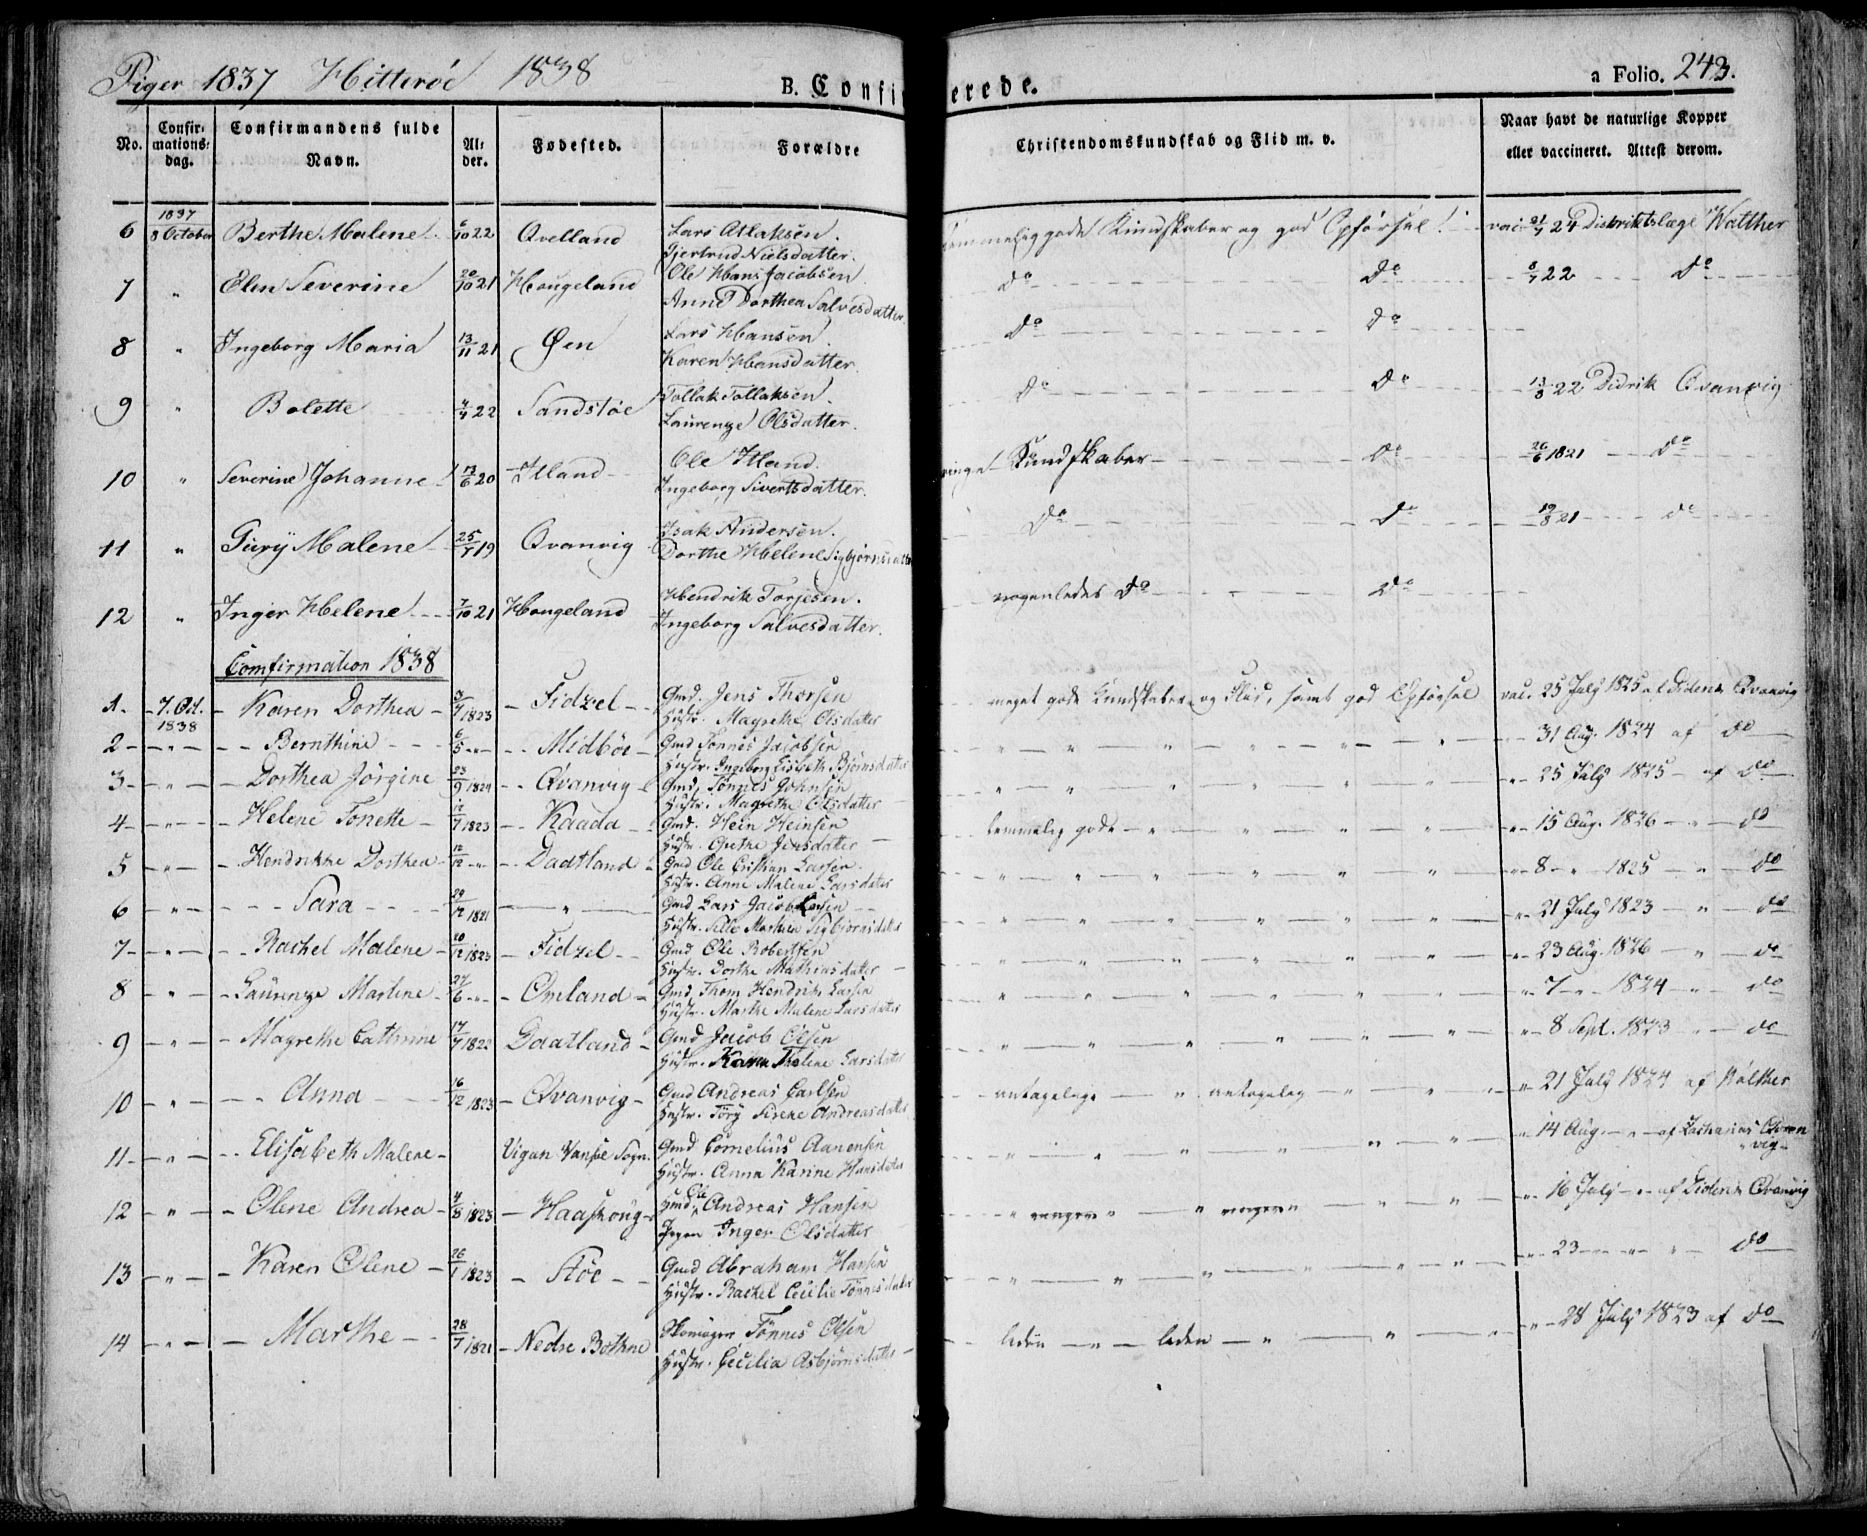 Piger 1837 Hitterøe 1838 B. Confirmerede. a Folio. 243.
No. Confirmationsdag. Confirmandens fulde Navn. Alder. Fødested. Forældre Christendomskundskab og Flid m. v. Naar havt de naturlige Kopper eller vaccineret. Attest derom.
6 1837 8 October Berthe Malene 6/10 22 Qvelland Lars Atlaksen. Gjertrud Nielsdatter. temmelig gode Kundskaber og god Opførsel vac. 21/7 24 Distriktslæge Walther
7 " Elen Severine 20/10 21 Hougeland Ole Hans Jacobsen Anne Dorthea Salvesdatter. do do 8/7 22 do
8 " Ingeborg Maria 13/11 21 Øen Lars Hansen Karen Hansdatter. do do
9 " Bolette 4/4 22 Sandstøe Tollak Tollaksen. Laurenze Olsdatter. do do 13/8 22 Didrik Qvanvig
10 " Severine Johanne 13/6 20 Itland Ole Itland. Ingeborg Sivertsdatter. Kundskaber do 26/6 1821 do
11 " Gurij Malene 25/1 19 Qvanvig Isak Andersen. Dorthe Helene Sigbjørnsdatter do do 19/8 21 do
12 " Inger Helene 7/10 21 Hougeland Hendrik Torjesen. Ingeborg Salvesdatter. nogenledes do do
Comfirmation 1838
1 7. Oct. 1838 Karen Dorthea 3/7 1823 Fidzel Gmd. Jens Thorsen Hustr. Magrethe Olsdatter meget gode Kundskaber og Flid, samt god Opførsel vac. 25 July 1825 af Diderik Qvanvig
2 " Bernthine 6/5 " Midbøe Gmd Tønnes Jacobsen Hustr. Ingeborg Lisbeth Bjørnsdatter " 31 Aug. 1824 af do
3 " Dorthea Jørgine 23/9 1824 Qvanvig Gmd. Tønnes Johnsen Hustr. Magrethe Olsdatter " 25 July 1825 af do
4 " Helene Tonette 12/7 1823 Kaada Gmd. Hein Heinsen Hustr. Grethe Jensdatter temmelig gode " 15 Aug. 1826 " do
5 " Hendrikke Dorthea 12/12 " Dadtland Gmd Ole Cristian Larsen Hustr. Anne Malene Larsdatter " 8 " 1825 " do
6 " Sara 29/12 1821 " Gmd Lars Jacob Larsen Hustr. Sille Marthea Sigbjørnsdatter " 21 July 1823 " do
7 " Rachel Malene 20/12 1823 Fidzel Gmd Ole Robertsen Hustr. Dorthe Mathiasdatter " 23 Aug. 1826 " do
8 " Laurenze Martine 24/6 " Omland Gmd Thom Hendrik Larsen Hustr. Marthe Malene Larsdatter " 7 " 1824 " do
9 " Magrethe Cathrine 17/7 1822 Daatland Gmd Jacob Olsen Hustr. Karen Tholene Larsdatter " 8 Sept. 1823 " do
10 " Anna 16/12 1823 Qvanvig Gmd Andreas Carlsen Hustr. Tøry Sirene Andreasdatter antagelige " antagelig " 21 July 1824 af Walther
11 " Elisabeth Malene Vigan Vansøe Sogn. Gmd Cornelius Aanensen Hustr. Anna Karine Hansdatter " 14 Aug. " af Zacharias Qvanvig
12 " Olene Andrea 4/8 1823 Haaskoug Gmd Ole Andreas Hansen Inger Olsdatter " 16 July " af Diderik Qvanvig
13 " Karen Olene 26/1 1823 Støe Gmd Abraham Hansen Hustr. Rachel Cecilie Tønnesdatter " 23 " " do
14 " Marthe 28/7 1821 Nedre Bothne Skomager Tønnes Olsen Hustr. Cecilia Asbjørnsdatter liden " liden " 28 July 1823 af do